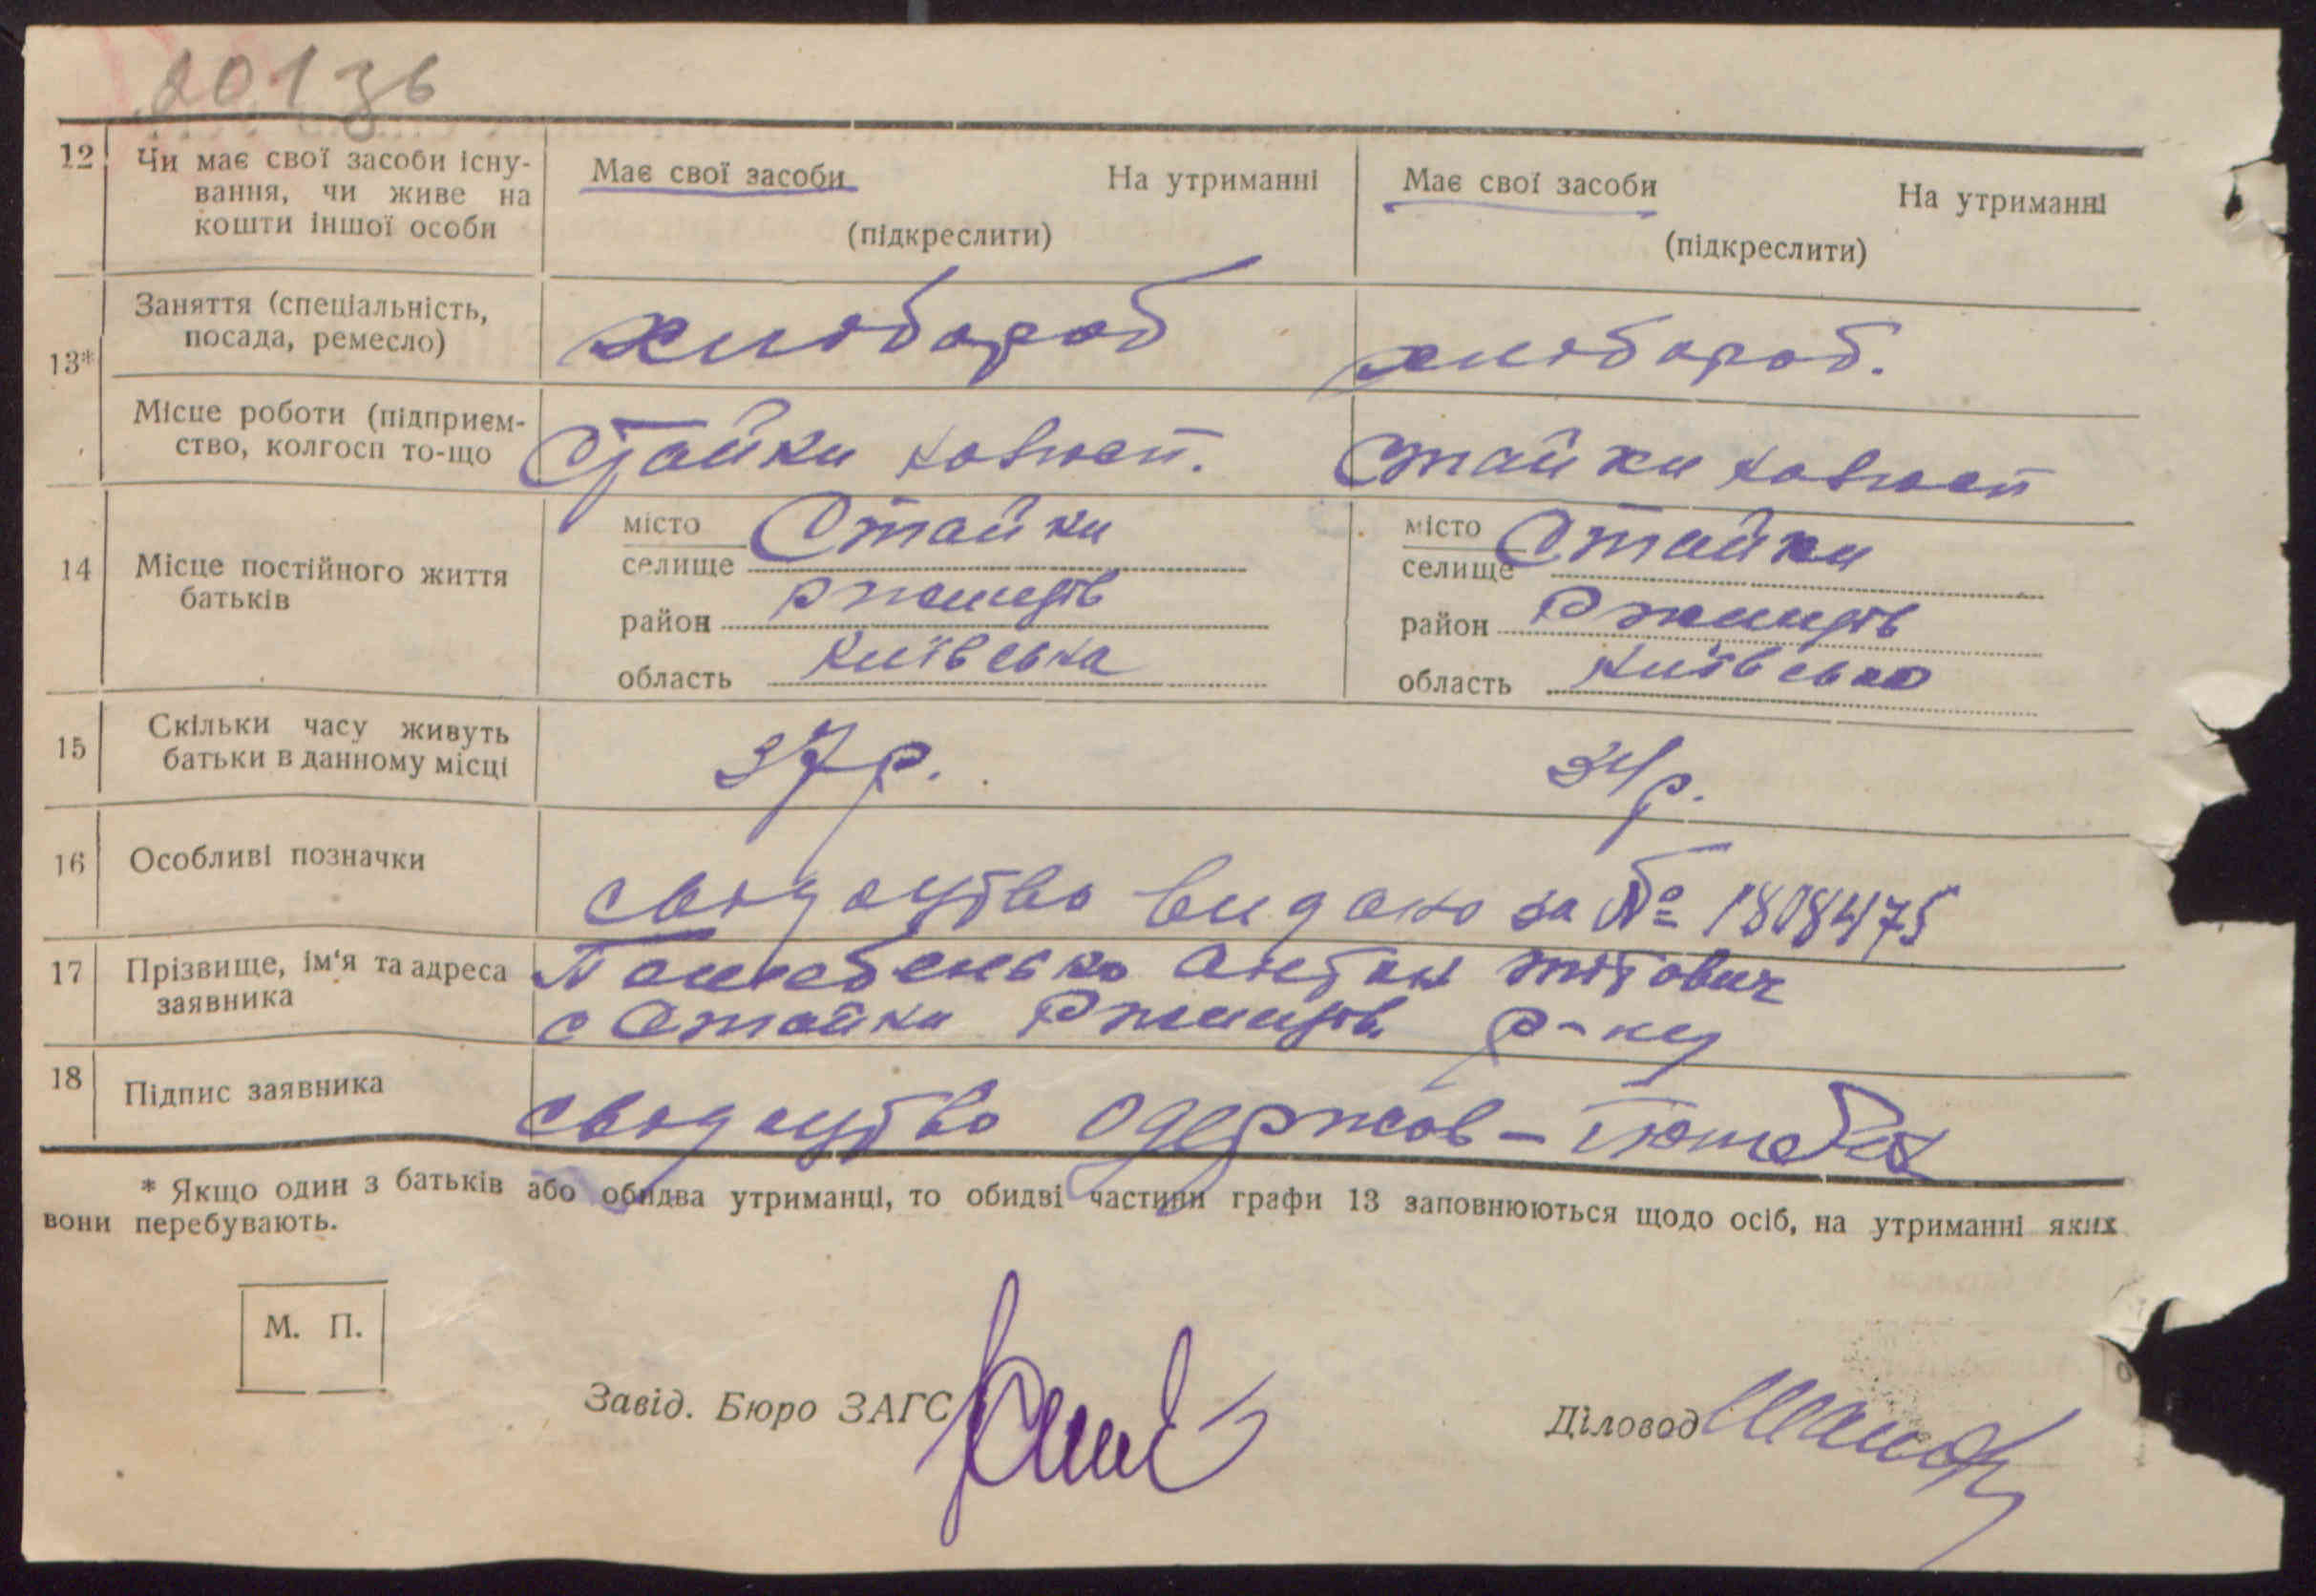 20136
12 Чи має свої засоби існу-
вання, чи живе на
кошти іншої особи
Має свої засоби На утриманні
(підкреслити)
Має свої засоби На утриманні
(підкреслити)
13* Заняття (спеціальність,
посада, ремесло)
хлібороб
хлібороб.
Місце роботи (підприєм-
ство, колгосп то-що
Стайки колгосп.
Стайки колгосп
14 Місце постійного життя
батьків
місто
селище Стайки
район Ржищів
область Київська
місто
селище Стайки
район Ржищів
область Київська
15 Скільки часу живуть
батьки в данному місці
37 р.
34 р.
16 Особливі позначки
свідоцтво видано за № 1808475
17 Прізвище, ім'я та адреса
заявника
Антон Тітович
с Стайки Ржищів р-ну
18 Підпис заявника
свідоцтво одержав –
* Якщо один з батьків або обидва утриманці, то обидві частини графи 13 заповнюються щодо осіб, на утриманні яких
вони перебувають.
М. П.
Завід. Бюро ЗАГС
Діловод